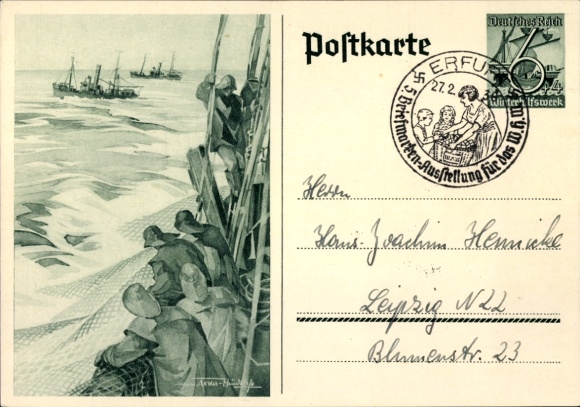 Postkarte
Deutsches Reich
6
Winterhilfswerk
ERFURT
27.2.
5. Briefmarken-Ausstellung für das W.H.W.
Herrn
Hans-Joachim Hennicke
Leipzig N22
Blumenstr. 23
Axster-Heudtlaß